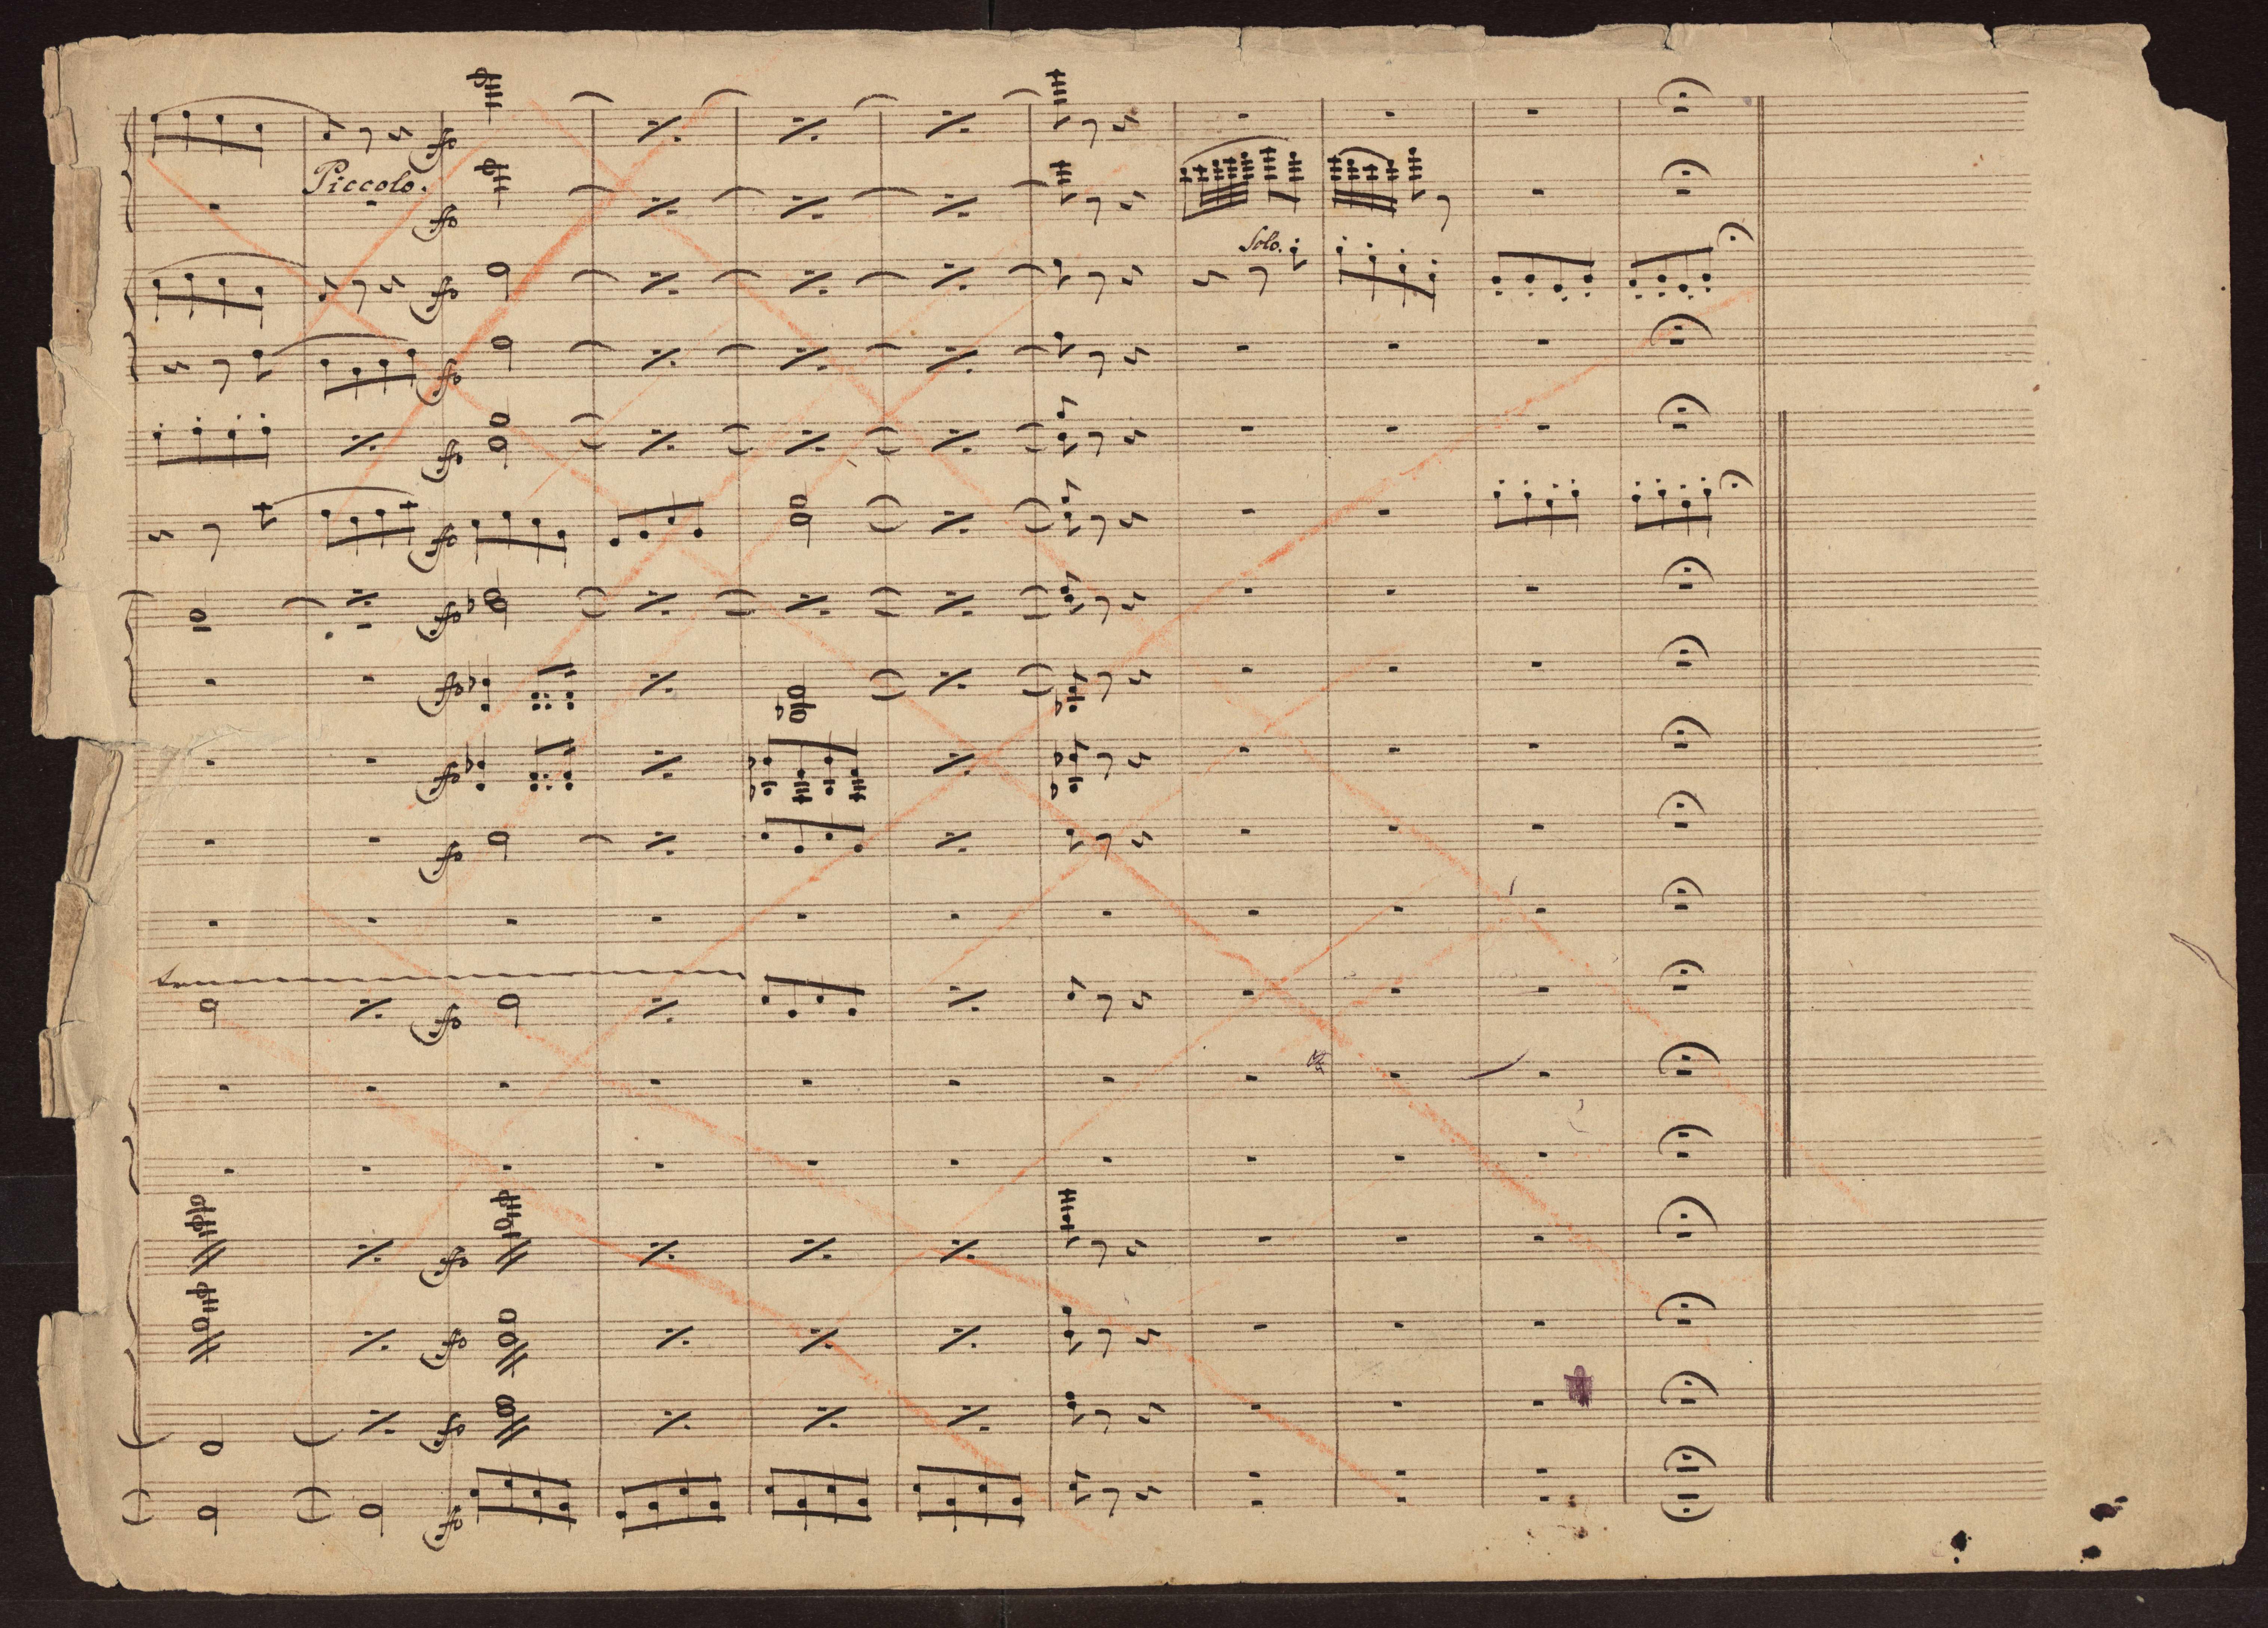 Piccolo.
Solo.